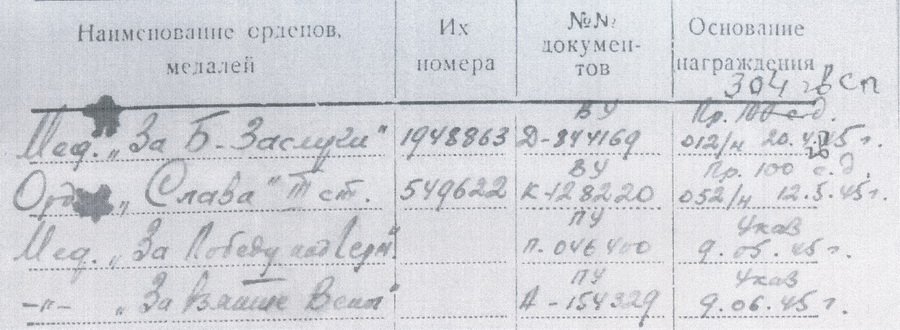 Наименование орденов, медалей
Их номера
№№ документов
Основание награждения
304 гв СП
ВУ Пр. 100 с.д.
Мед. „За Б-Заслуги" 1948863 Д-844169 012/н 20.4.45 г.
ВУ Пр. 100 с.д.
Орд. „Слава" III ст. 549622 К-128220 052/н 12.5.45 г.
ПУ 4 кав
Мед. „За Победу над Герм." П.046400 9.05.45 г.
ПУ 4 кав
-"- „За Взятие Вены" А-154329 9.06.45 г.